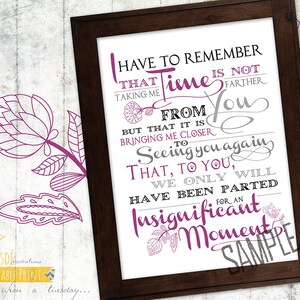 I HAVE TO REMEMBER
THAT Time IS NOT
TAKING ME FARTHER
FROM You
BUT THAT IT IS
BRINGING ME CLOSER
TO
Seeing you again
THAT, TO YOU!
WE ONLY WILL
HAVE BEEN PARTED
FOR AN
Insignificant
Moment
SAMPLE
PRINT
upon a tuesday...